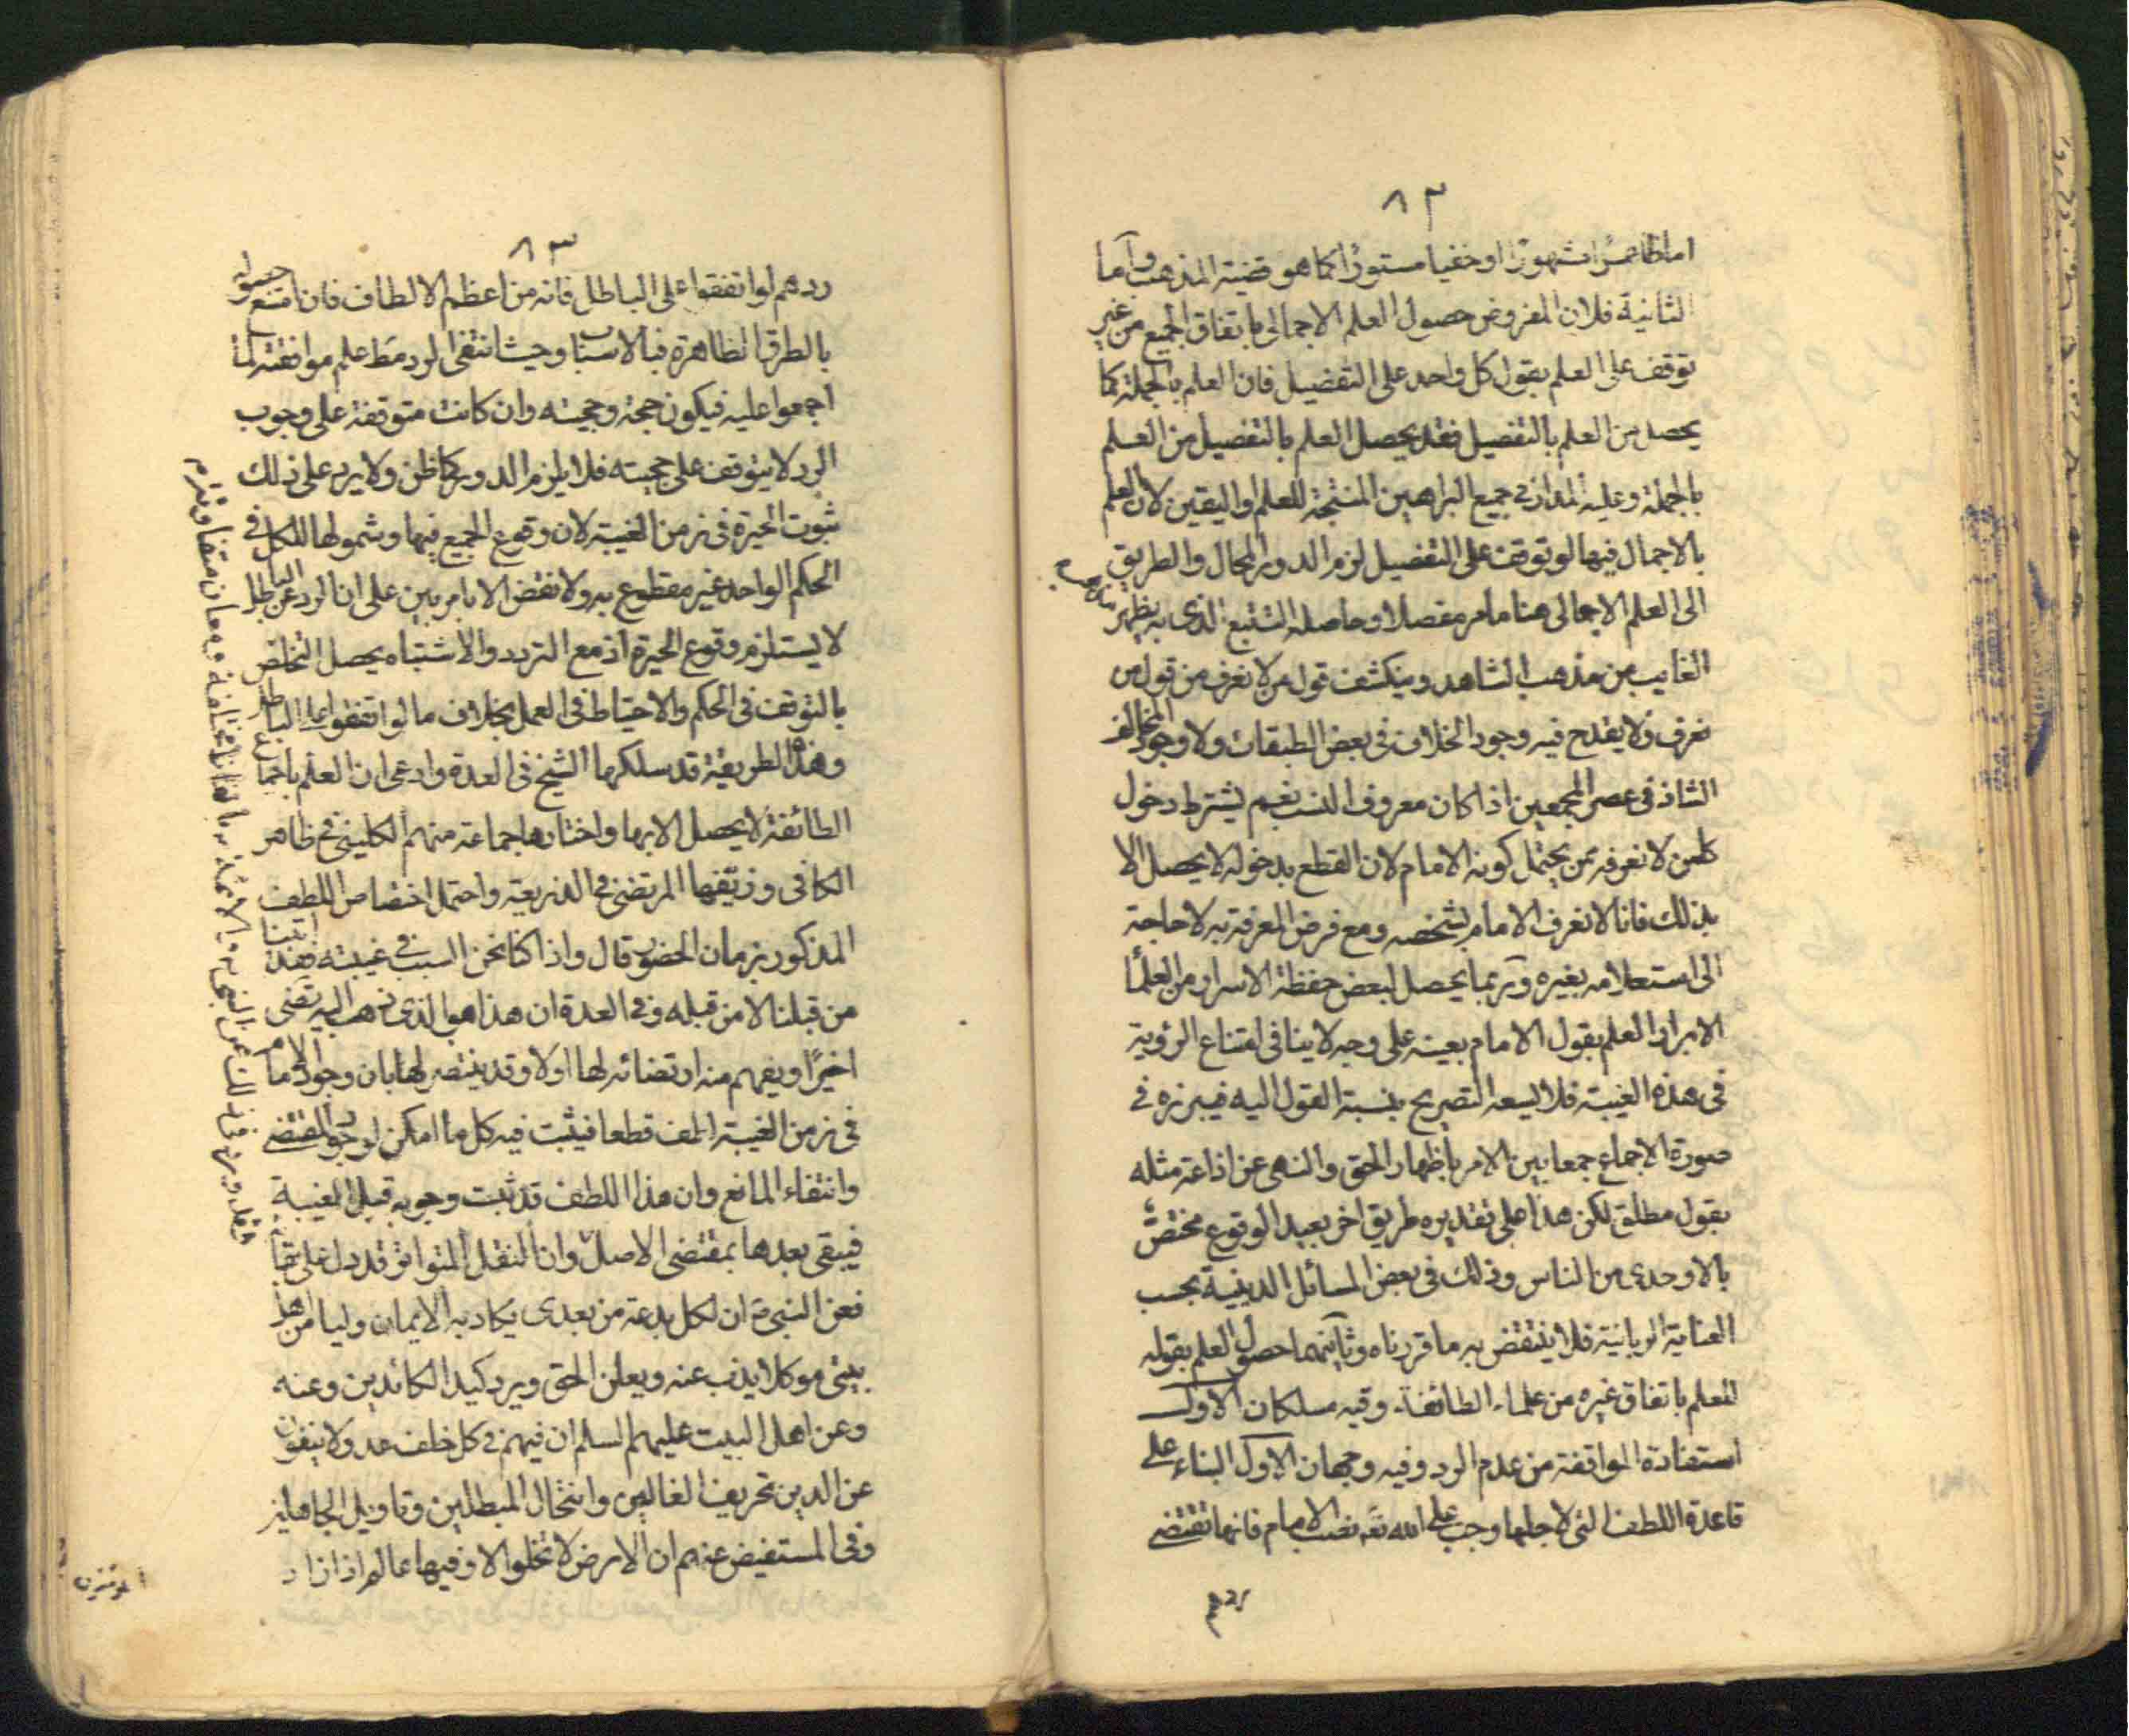 ٨٢
اما ظاهرا مشهورا او خفيا مستورا كما هو قضية المذهب واما
الثانية فلان المفروض حصول العلم الاجمالى باتفاق الجميع من غير
توقف على العلم بقول كل واحد على التفضيل فان العلم بالجملة كما
يحصل من العلم بالتفصيل فقد يحصل العلم بالتفصيل من العلم
باجملة وعليه المدار فى جميع البراهين المنتجة للعلم واليقين لان العلم
بالاجمال فيها لو توقف على التفضيل لزم الدور المحال والطريق
الى العلم الاجمالى هنا ما مر مفصلا وحاصله التتبع الذى به يظهر مذهب
الغايب من مذهب الشاهد وينكشف قول من لا نعرف من قول من
نعرف ولا يقدح فيه وجود الخلاف فى بعض الطبقات ولا وجود المخالف
الشاذ فى عصر المجمعين اذا كان معروف النسب نعم يشترط دخول
كل من لا نعرفه ممن يحتمل كونه الامام لان القطع بدخوله لا يحصل الا
بذلك فانا لا نعرف الامام بشخصه ومع فرض المعرفة به لا حاجة
الى استعلامه بغيره وربما يحصل لبعض حفظة الاسرار من العلماء
الابرار العلم بقول الامام بعينه على وجه لا ينافى امتناع الرؤية
فى هذه الغيبة فلا يسعه التصريح بنسبة القول اليه فيبرزه فى
صورة الاجماع جمعا بين الامر باظهار الحق والنهى عن اذاعة مثله
بقول مطلق لكن هذا على تقديره طريق اخر بعيد الوقوع مختص
بالاوحدى من الناس وذلك فى بعض المسائل الدينية بحسب
العناية الربانية فلا ينتقض به ما قررناه وثانيهما حصول العلم بقوله
للعلم باتفاق غيره من علماء الطائفة وفيه مسلكان الاول
استفادة الموافقة من عدم الرد وفيه وجهان الاول البناء على
قاعدة اللطف التى لاجلها وجب على الله تعه نصب الامام فانها تقتضى
ردهم
٨٣
ردهم لو اتفقوا على الباطل فانه من اعظم الالطاف فان امتنع حصوله
بالطرق الظاهرة فبالاسباب وحيث انتفى الرد مط علم موافقته لما
اجمعوا عليه فيكون حجة وحجيته وان كانت متوقفة على وجوب
الرد لا يتوقف على حجيته فلا يلزم الدور كما ظن ولا يرد على ذلك
ثبوت الحيرة فى زمن الغيبة لان وقوع الجميع فيها وشمولها للكل فى
الحكم الواحد غير مقطوع به ولا نقض الا بامر بين على ان الرد عن الباطل
لا يستلزم وقوع الحيرة اذ مع التردد والاشتباه يحصل التخلص
بالتوقف فى الحكم والاحتياط فى العمل بخلاف ما لو اتفقوا على الباطل
وهذه الطريقة قد سلكها الشيخ فى العدة وادعى ان العلم باجماع
الطائفة لا يحصل الا بها واختارها جماعة منهم الكلينى فى ظاهر
الكافى وزيفها المرتضى فى الذريعة واحتمل اختصاص اللطف
المذكور بزمان الحضور قال واذا كنا نحن السبب فى غيبته فقد اتينا
من قبلنا لا من قبله وفى العدة ان هذا هو الذى ذهب اليه المرتضى
اخيرا ويفهم منه ارتضائه لها اولا وقد ينتصر لها بان وجود الامام
فى زمن الغيبة لطف قطعا فيثبت فيه كل ما امكن لوجود المقتضى
وانتفاء المانع وان هذا اللطف قد ثبت وجوبه قبل الغيبة
فيبقى بعدها بمقتضى الاصل وان النقل المتواتر قد دل على بقائه
فعن النبى ص ان لكل بدعة من بعدى يكاد به الايمان وليا من اهل
بيتى موكلا يذب عنه ويعلن الحق ويرد كيد الكائدين وعنه
وعن اهل البيت عليهم السلم ان فيهم فى كل خلف عدولا ينفون
عن الدين تحريف الغالين وانتحال المبطلين وتاويل الجاهلين
وفى المستفيض عنهم ان الارض لا تخلوا الا وفيها عالم اذا زاد
المؤمنون